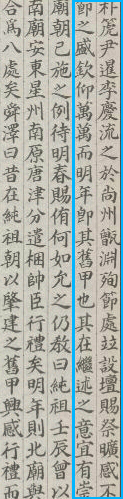 朴箎尹暹李慶流之於尚州甑淵殉節處竝設壇賜祭曠感不
節一感欽仰萬萬而明年卽其舊甲也其在繼述之意宜有
廟朝已施之例待明春賜侑何如允之仍敎曰純祖壬辰曾以
南廟安東星州南原唐津分遣梱帥臣行禮矣明年則北廟與
合爲八處矣舜澤曰昔在純祖朝以肇建之舊甲興感行禮而